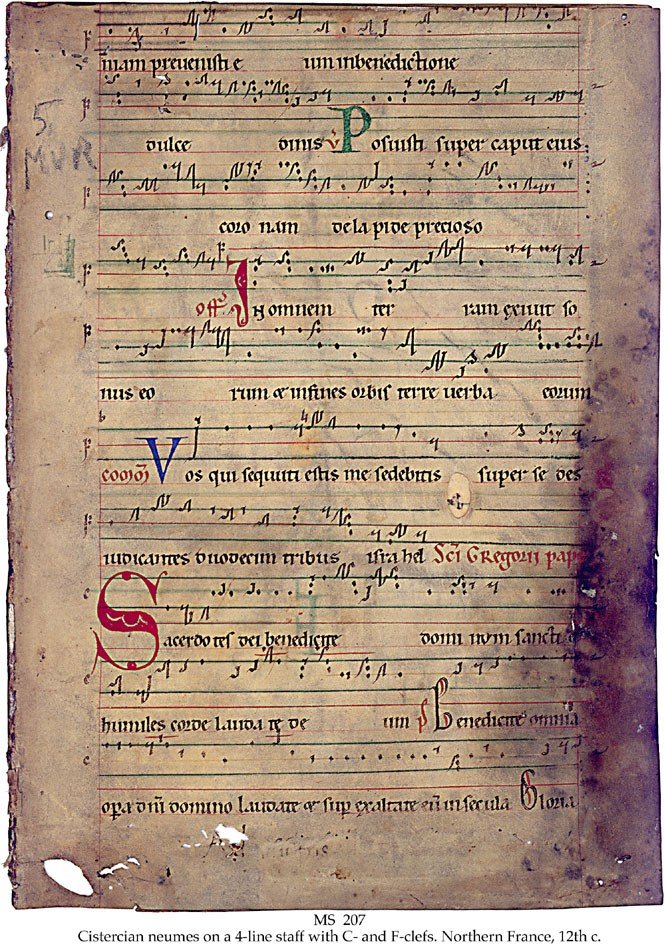 niam prevenisti e um in benedictione
5
MVR
dulce dinis v Posuisti super caput eius
coro nam de la pide precioso
off In omnem ter ram exivit so
nus eo rum et in fines orbis terre verba eorum
Vos qui sequuti estis me sedebitis super se des
iudicantes duodecim tribus isra hel Sci Gregorii pape
Sacerdotes dei benedicite domi num sancti
humiles corde lauda te de um Benedicite omnia
opera dni domino laudate et sup exaltate eu in secula Gloria
MS 207
Cistercian neumes on a 4-line staff with C- and F-clefs. Northern France, 12th c.